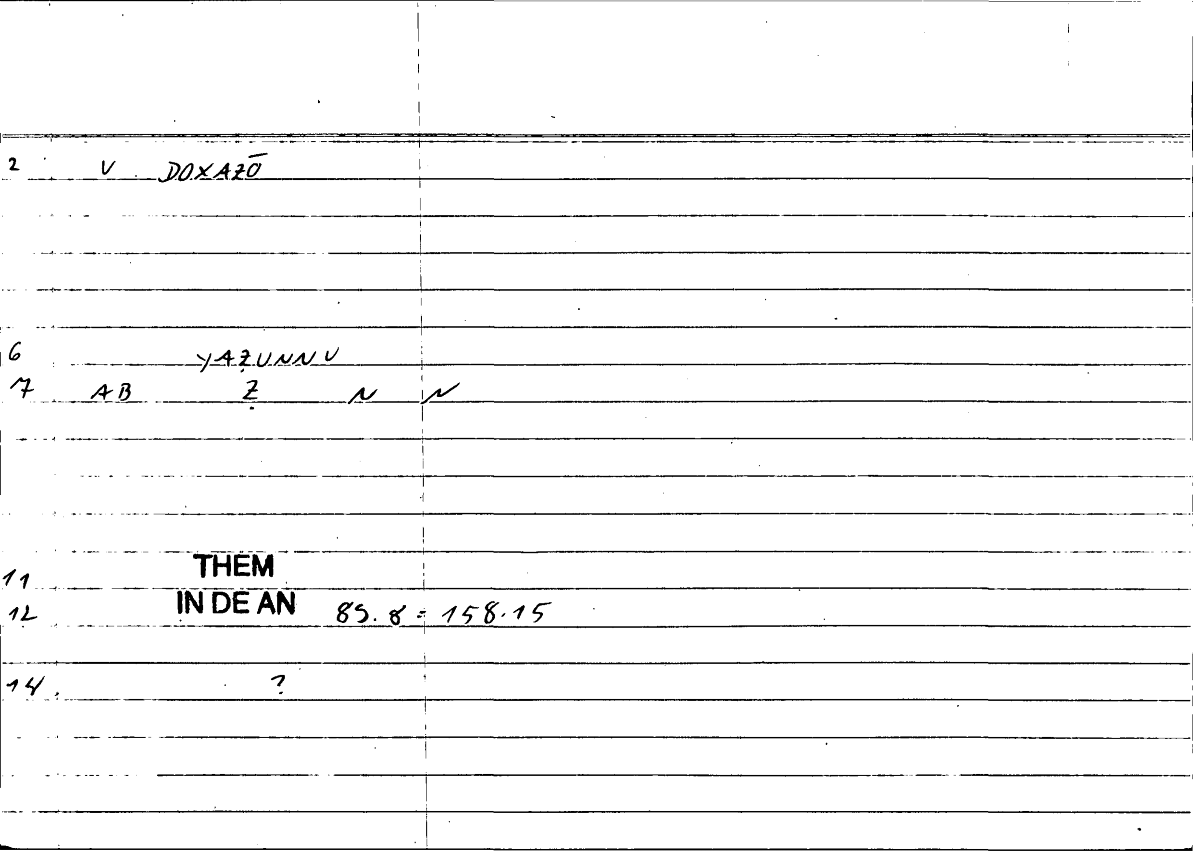 2 V DOXAZŌ
6 YAẒUNNU
7 AB Ẓ N N
11 THEM
12 IN DE AN 85.8 = 158.15
14. ?